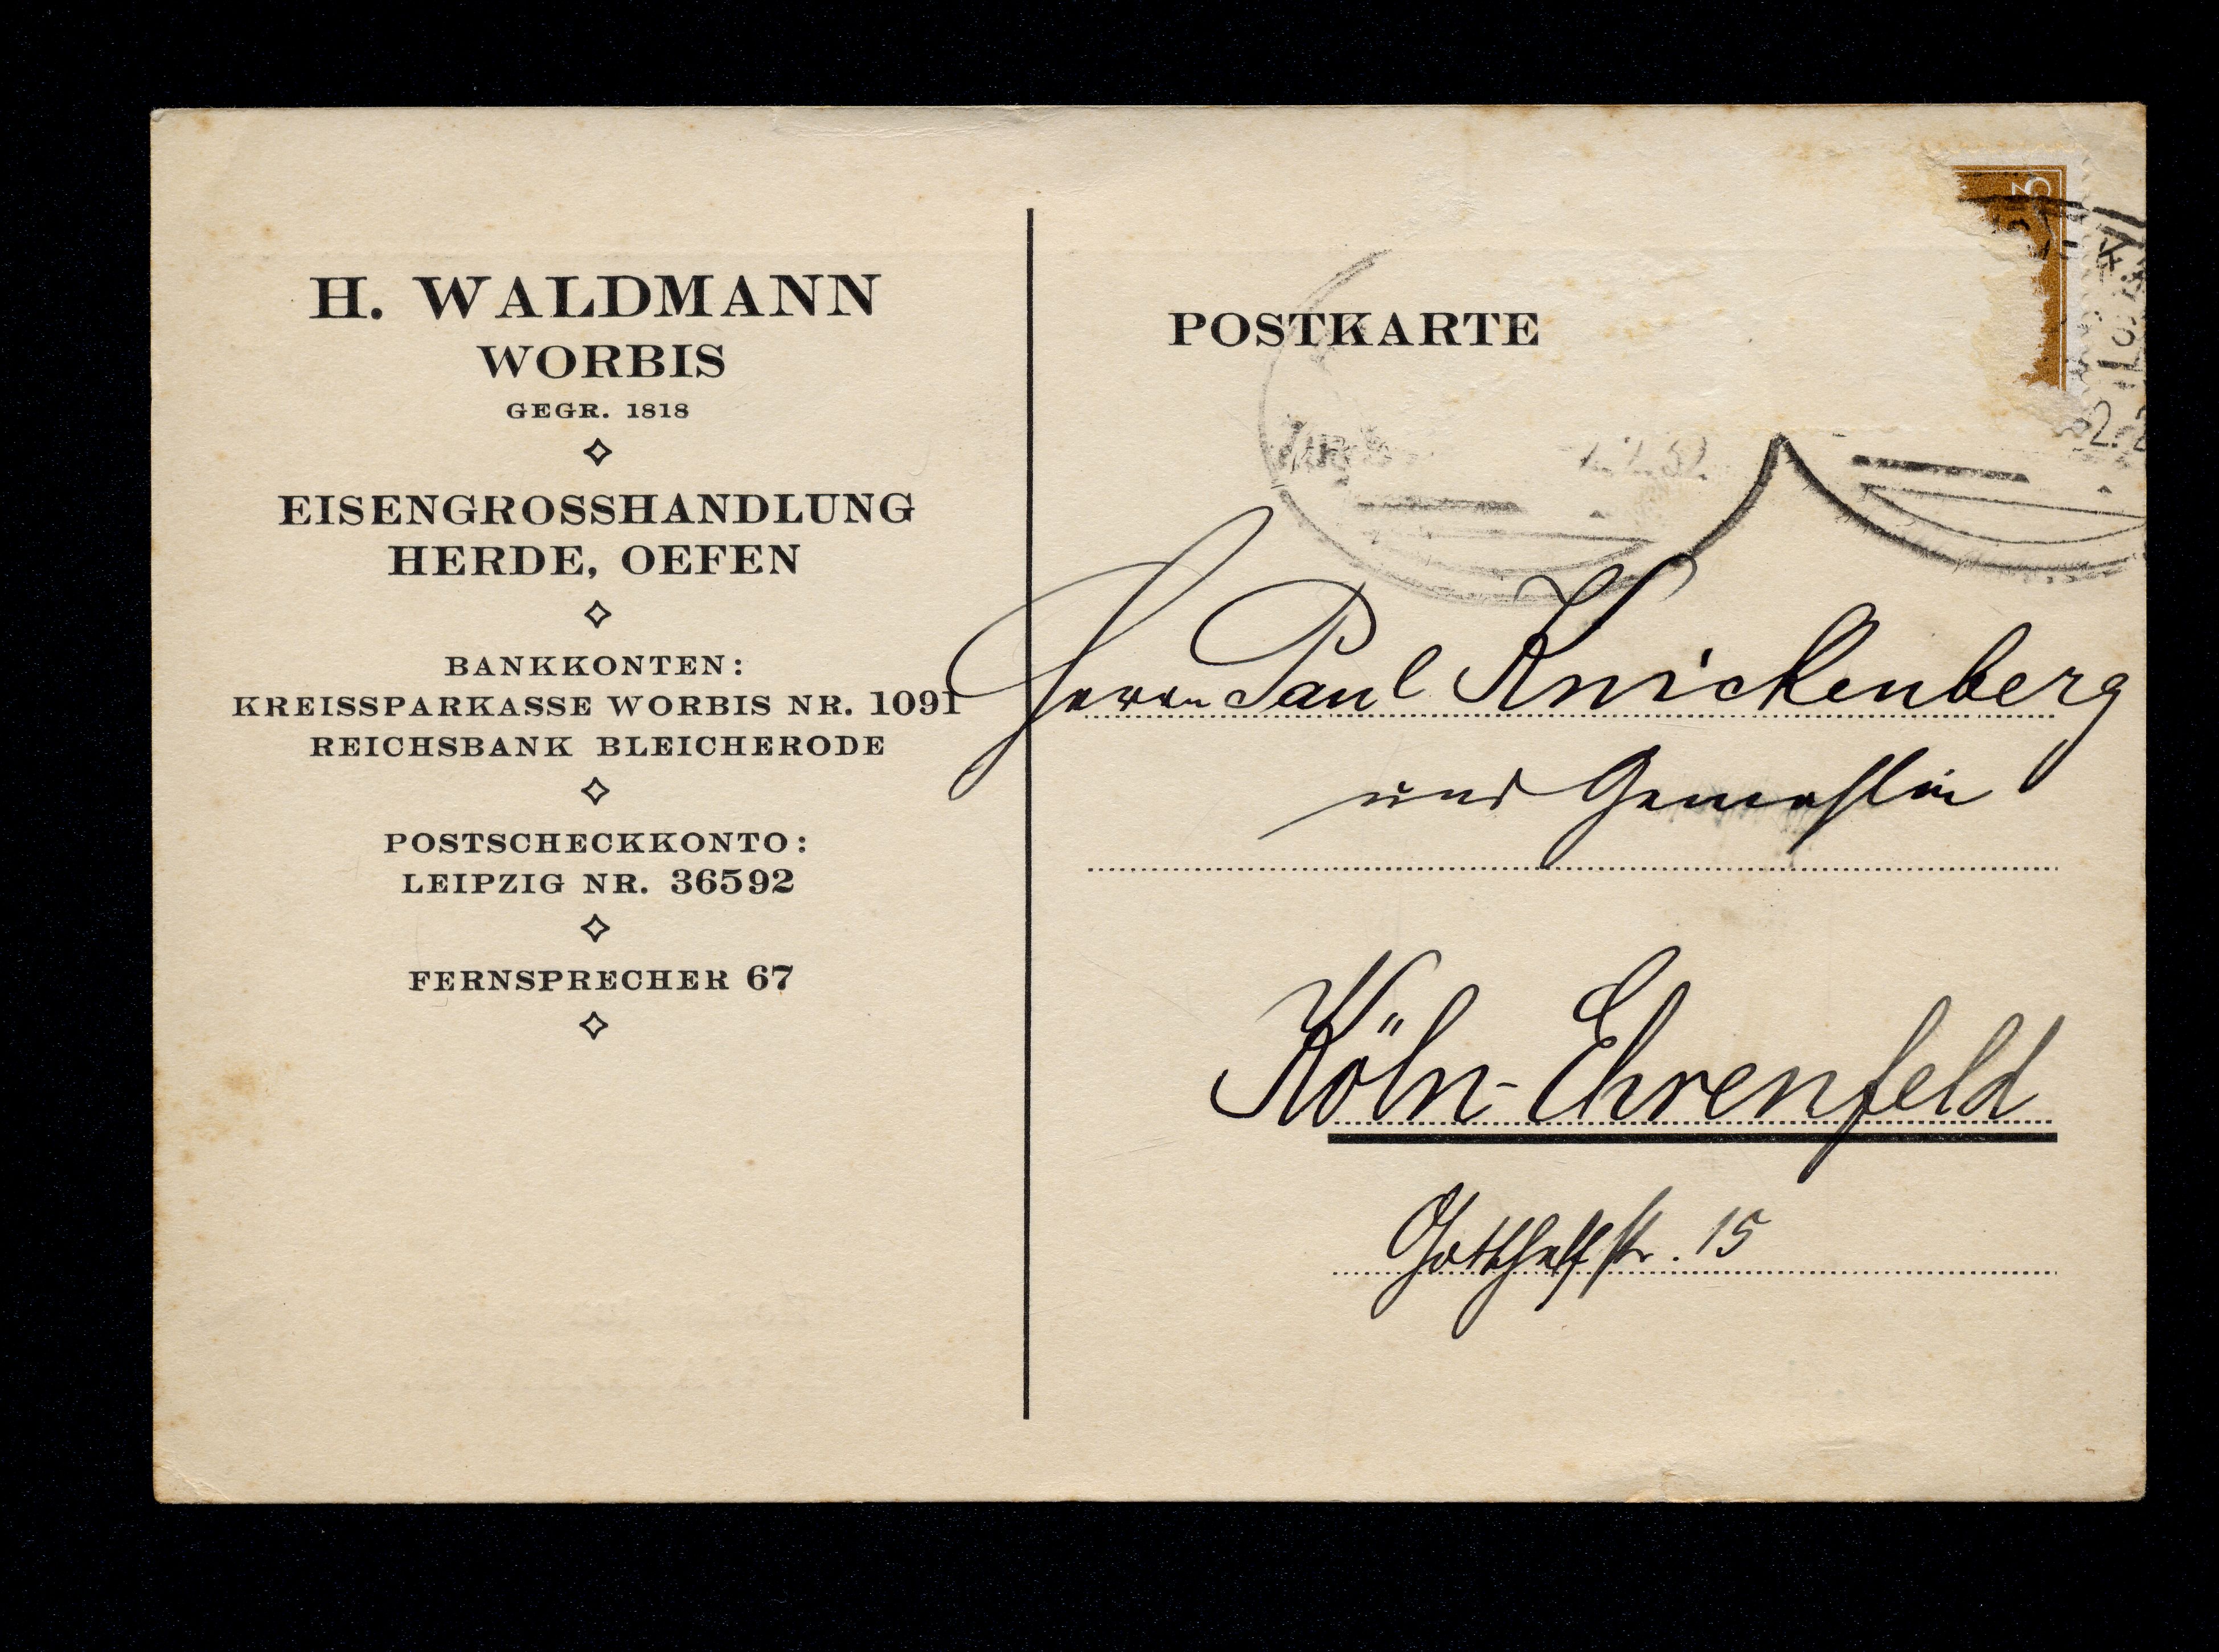 H. WALDMANN
WORBIS
GEGR. 1818
EISENGROSSHANDLUNG
HERDE, OEFEN
BANKKONTEN:
KREISSPARKASSE WORBIS NR. 1091
REICHSBANK BLEICHERODE
POSTSCHECKKONTO:
LEIPZIG NR. 36592
FERNSPRECHER 67
POSTKARTE
3
Herrn Paul Knickenberg
und Gemahlin
Köln-Ehrenfeld
Gotthelfstr. 15